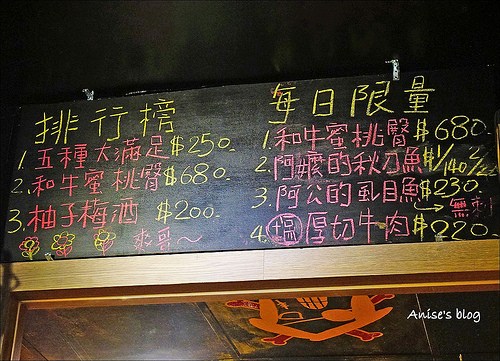 排行榜
1. 五種大滿足 $250.
2. 和牛蜜桃臀 $680.
3. 柚子梅酒 $200.
爽哥~
每日限量
1. 和牛蜜桃臀 $680.
2. 阿嬤的秋刀魚 $1/140
3. 阿公的虱目魚 $230.
→無刺
4. 塩厚切牛肉 $220.
Anise's blog